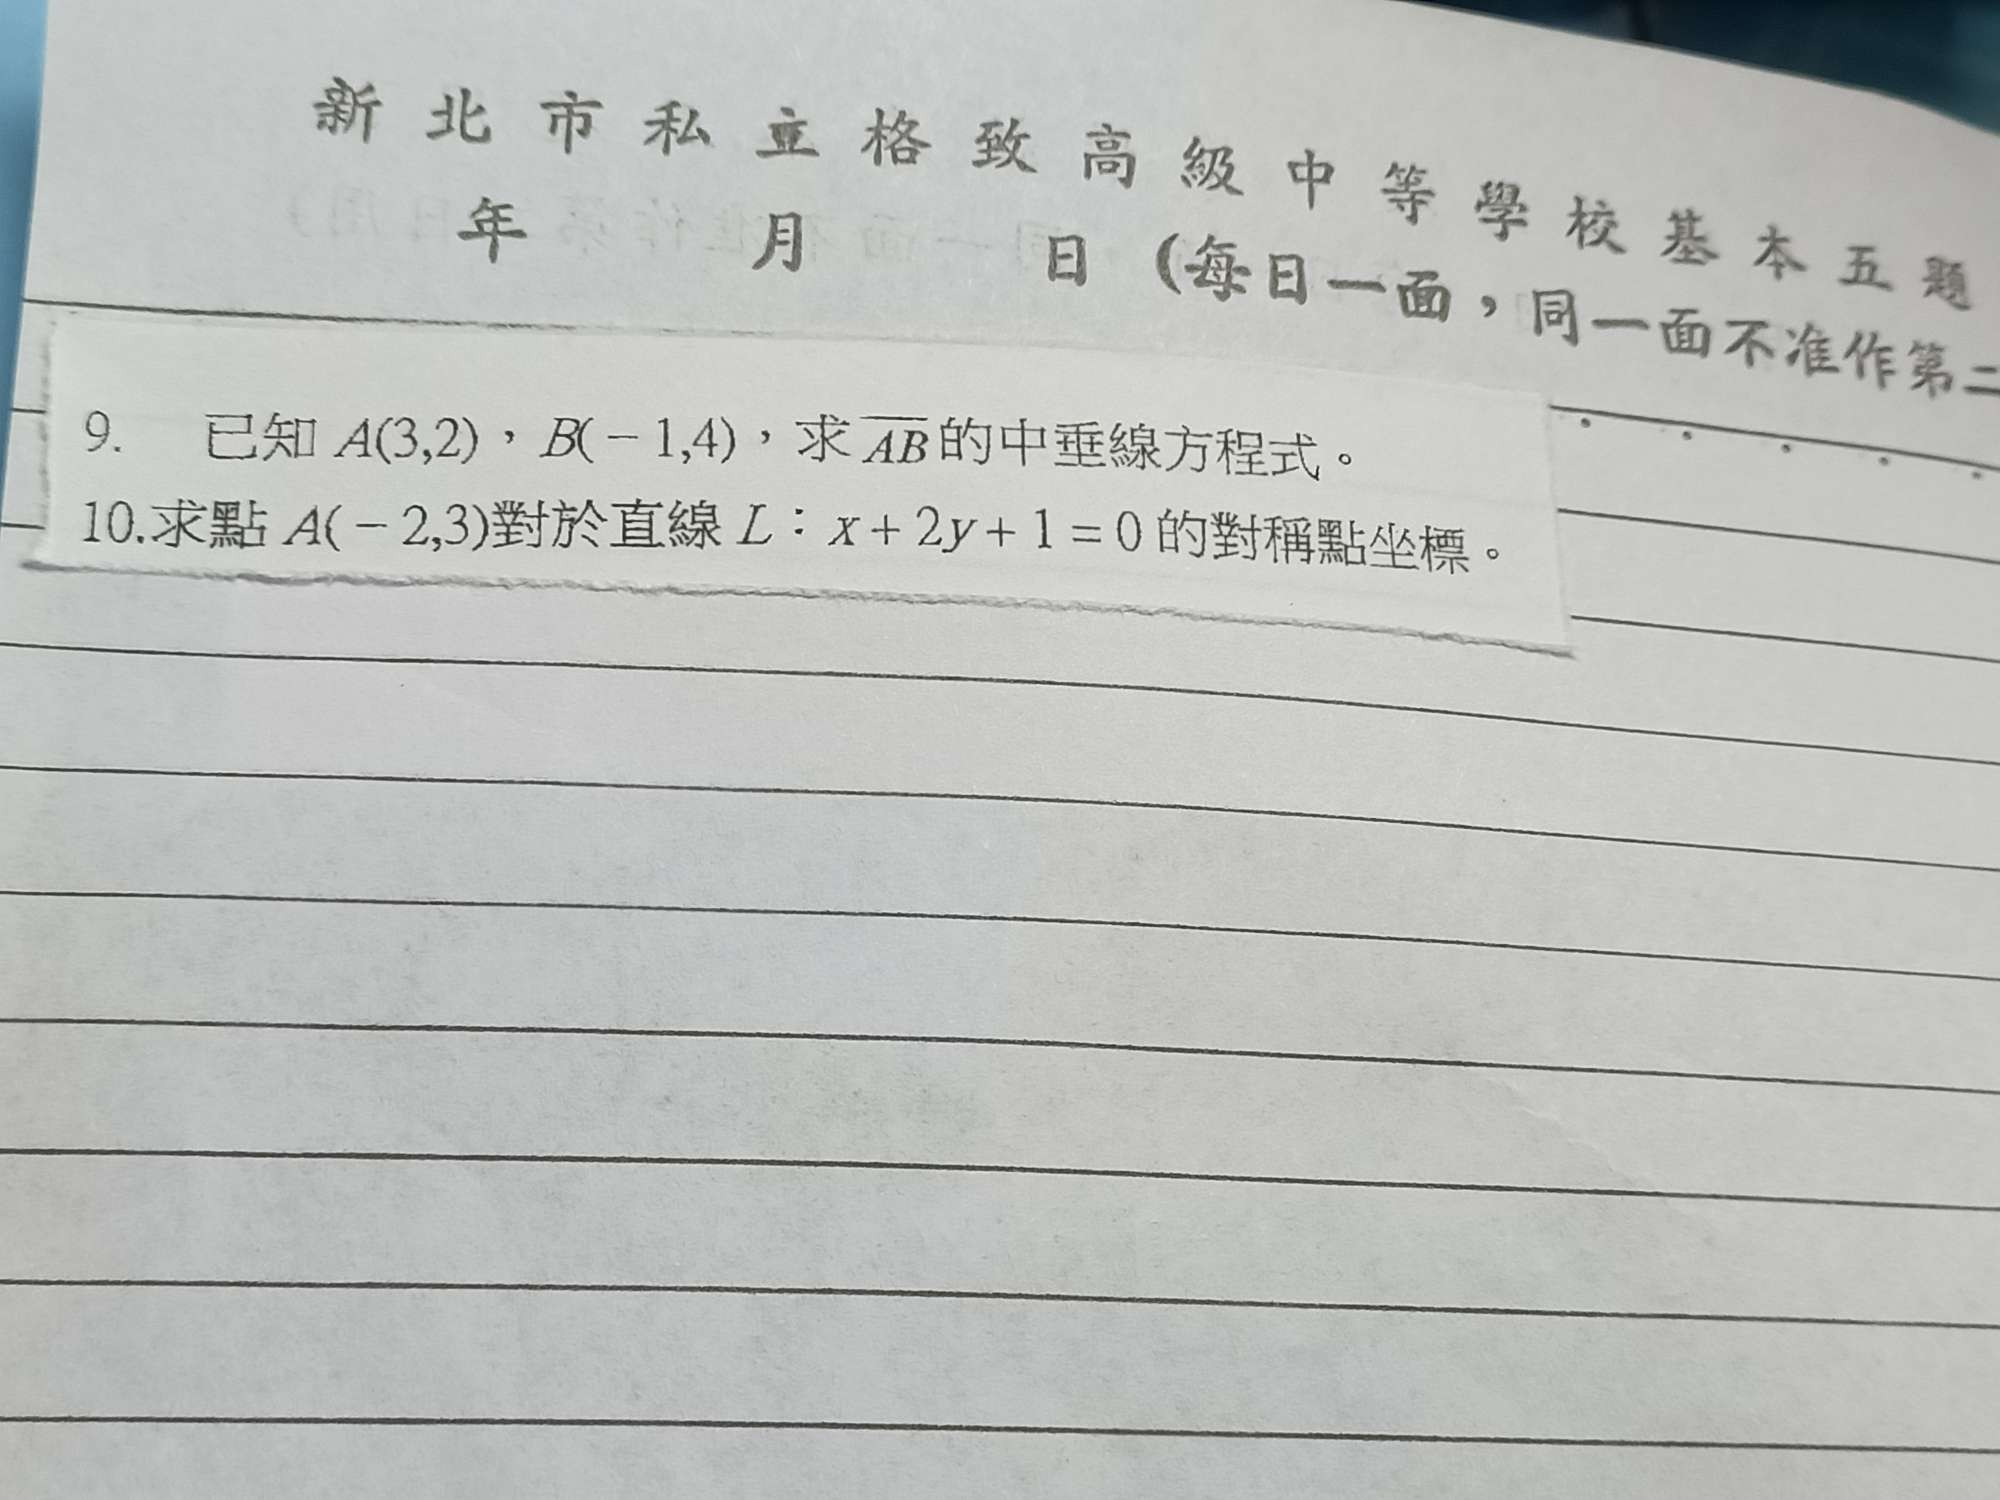 新北市私立格致高級中等學校基本五題
年 月 日（每日一面，同一面不准作第二
9. 已知 A(3,2)，B(－1,4)，求 \overline{AB} 的中垂線方程式。
10.求點 A(－2,3)對於直線 L：x＋2y＋1＝0 的對稱點坐標。